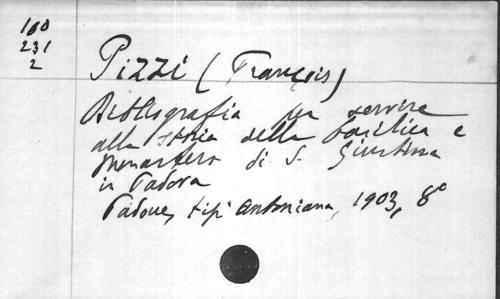 160
231
2
Pizzi (François)
Bibliografia per servire
alla storia della basilica e
monastero di S. Giustina
in Padova
Padoue, tipi Antoniana, 1903, 8°